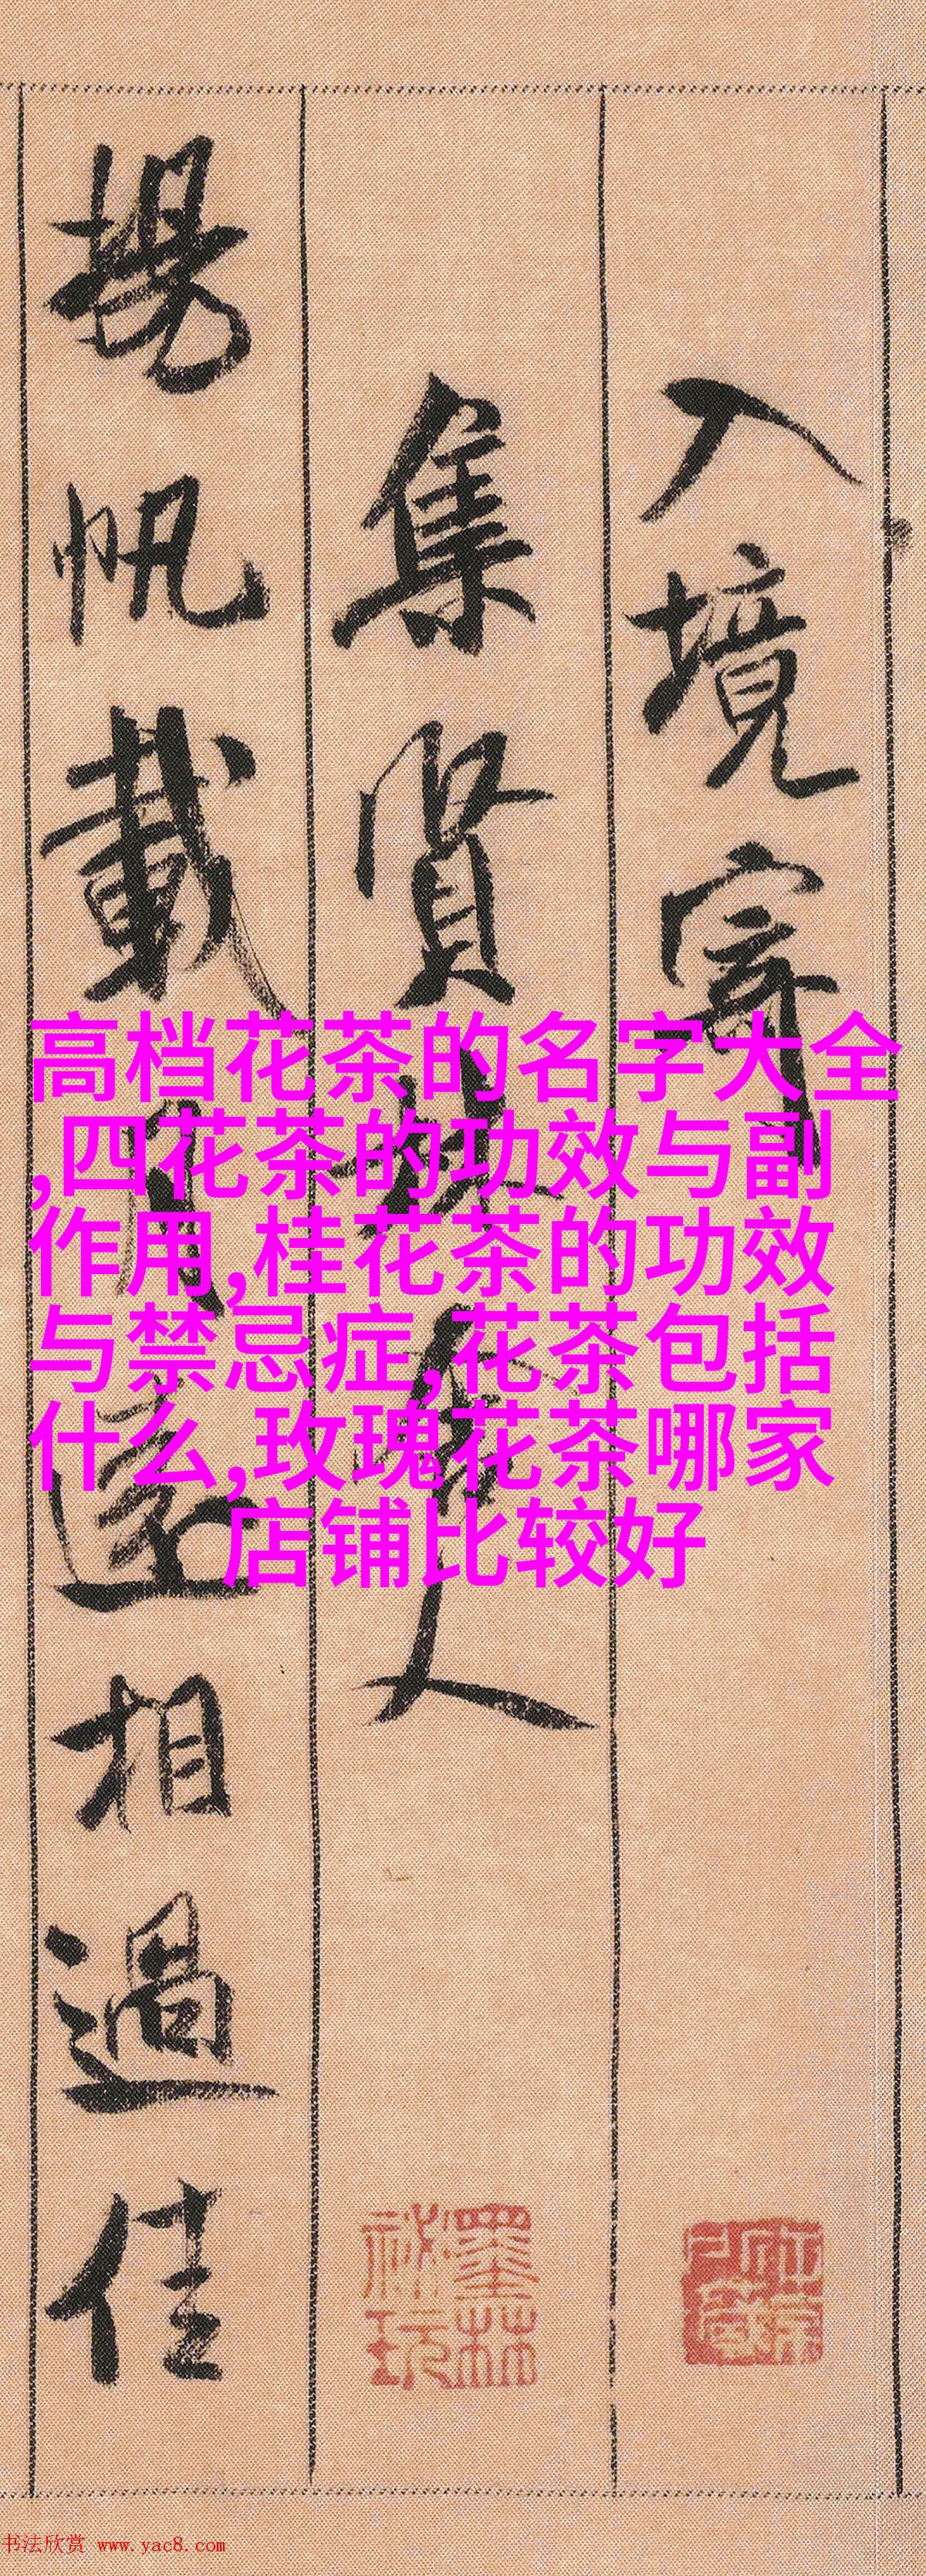 入境寄
集賢林舍人
揚帆載月遠相過佳
高档花茶的名字大全
,四花茶的功效与副
作用,桂花茶的功效
与禁忌症,花茶包括
什么,玫瑰花茶哪家
店铺比较好
墨林
祕玩
书法欣赏 www.yac8.com